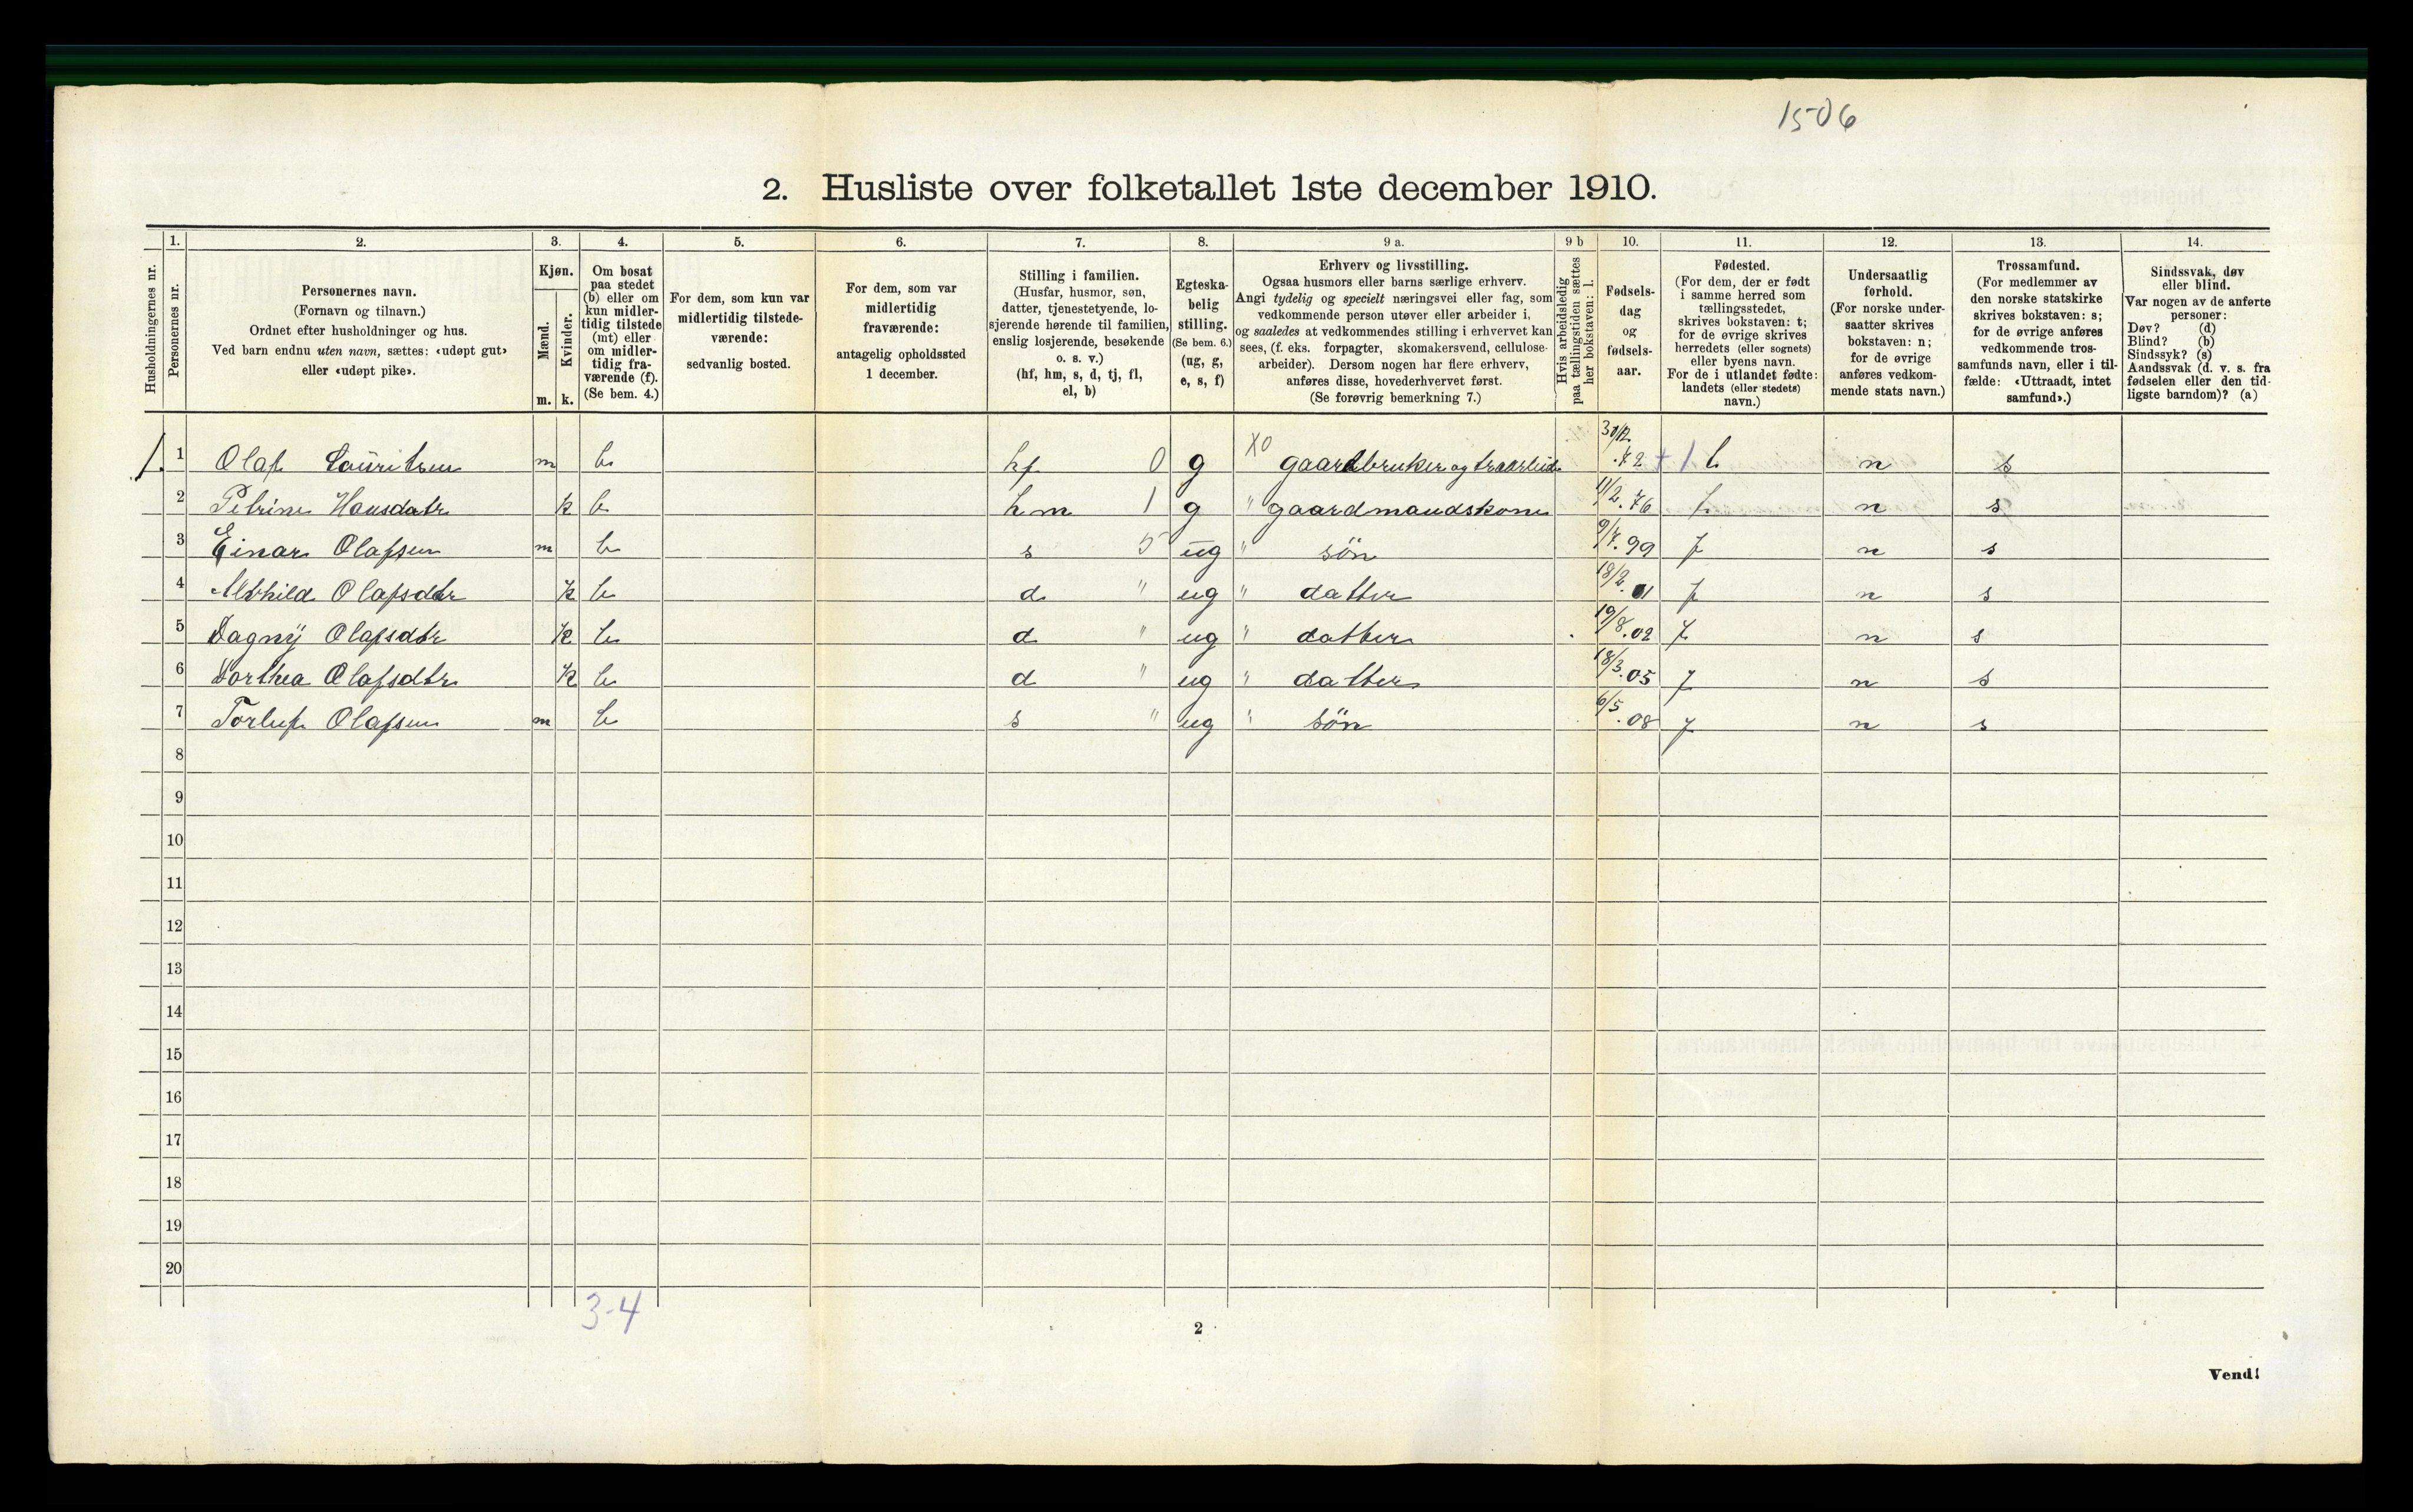 1506
2. Husliste over folketallet 1ste december 1910.
Husholdningernes nr.
1. Personernes nr.
2. Personernes navn.
(Fornavn og tilnavn.)
Ordnet efter husholdninger og hus.
Ved barn endnu uten navn, sættes: «udøpt gut»
eller «udøpt pike».
3. Kjøn.
Mænd. m.
Kvinder. k.
4. Om bosat
paa stedet
(b) eller om
kun midler-
tidig tilstede
(mt) eller
om midler-
tidig fra-
værende (f).
(Se bem. 4.)
5. For dem, som kun var
midlertidig tilstede-
værende:
sedvanlig bosted.
6. For dem, som var
midlertidig
fraværende:
antagelig opholdssted
1 december.
7. Stilling i familien.
(Husfar, husmor, søn,
datter, tjenestetyende, lo-
sjerende hørende til familien,
enslig losjerende, besøkende
o. s. v.)
(hf, hm, s, d, tj, fl,
el, b)
8. Egteska-
belig
stilling.
(Se bem. 6.)
(ug, g,
e, s, f)
9 a. Erhverv og livsstilling.
Ogsaa husmors eller barns særlige erhverv.
Angi tydelig og specielt næringsvei eller fag, som
vedkommende person utøver eller arbeider i,
og saaledes at vedkommendes stilling i erhvervet kan
sees, (f. eks. forpagter, skomakersvend, cellulose-
arbeider). Dersom nogen har flere erhverv,
anføres disse, hovederhvervet først.
(Se forøvrig bemerkning 7.)
9 b Hvis arbeidsledig
paa tællingstiden sættes
her bokstaven: l.
10. Fødsels-
dag
og
fødsels-
aar.
11. Fødested.
(For dem, der er født
i samme herred som
tællingsstedet,
skrives bokstaven: t;
for de øvrige skrives
herredets (eller sognets)
eller byens navn.
For de i utlandet fødte:
landets (eller stedets)
navn.)
12. Undersaatlig
forhold.
(For norske under-
saatter skrives
bokstaven: n;
for de øvrige
anføres vedkom-
mende stats navn.)
13. Trossamfund.
(For medlemmer av
den norske statskirke
skrives bokstaven: s;
for de øvrige anføres
vedkommende tros-
samfunds navn, eller i til-
fælde: «Uttraadt, intet
samfund».)
14. Sindssvak, døv
eller blind.
Var nogen av de anførte
personer:
Døv? (d)
Blind? (b)
Sindssyk? (s)
Aandssvak (d. v. s. fra
fødselen eller den tid-
ligste barndom)? (a)
1. 1 Olaf Lauritsen m b hf 0 g X0 gaardbruker og træarbeid 30/12 .72 + 1 t n s
2 Petrine Hansdatr k b hm 1 g " gaardmandskone 11/2 .76 n s
3 Einar Olafsen m b s 5 ug " søn 9/7 .99 n s
4 Alvhild Olafsdtr k b d " ug " datter 18/2 .01 n s
5 Dagny Olafsdtr k b d " ug " datter 19/8 .02 n s
6 Dorthea Olafsdtr k b d " ug " datter 18/3 .05 n s
7 Torluf Olafsen m b s " ug " søn 6/5 .08 n s
8
9
10
11
12
13
14
15
16
17
18
19
20
3-4
2
Vend!